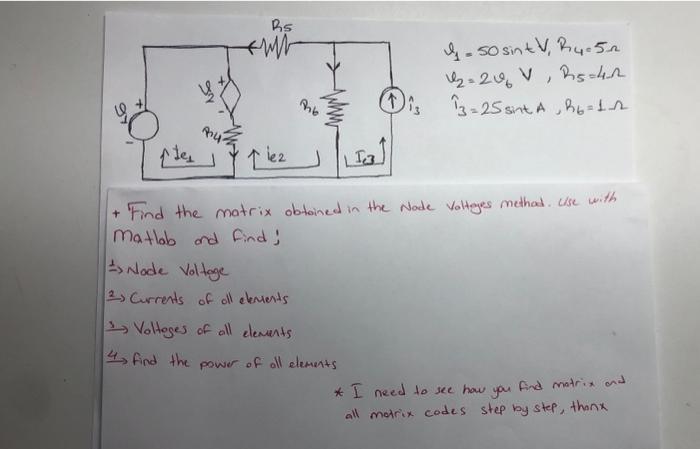 R5
v1 = 50 sint V, R4 = 5Ω
v2 = 2v6 V , R5 = 4Ω
i3 = 25 sint A , R6 = 1Ω
v1
+
-
v2
+
-
R4
R6
i3
Ie1
ie2
Ie3
+ Find the matrix obtained in the Node Volteges method. Use with
Matlab and find ;
1-> Node Voltage
2-> Currents of all elements
3-> Volteges of all elements
4-> find the power of all elements
* I need to see how you find matrix and
all matrix codes step by step, thanx